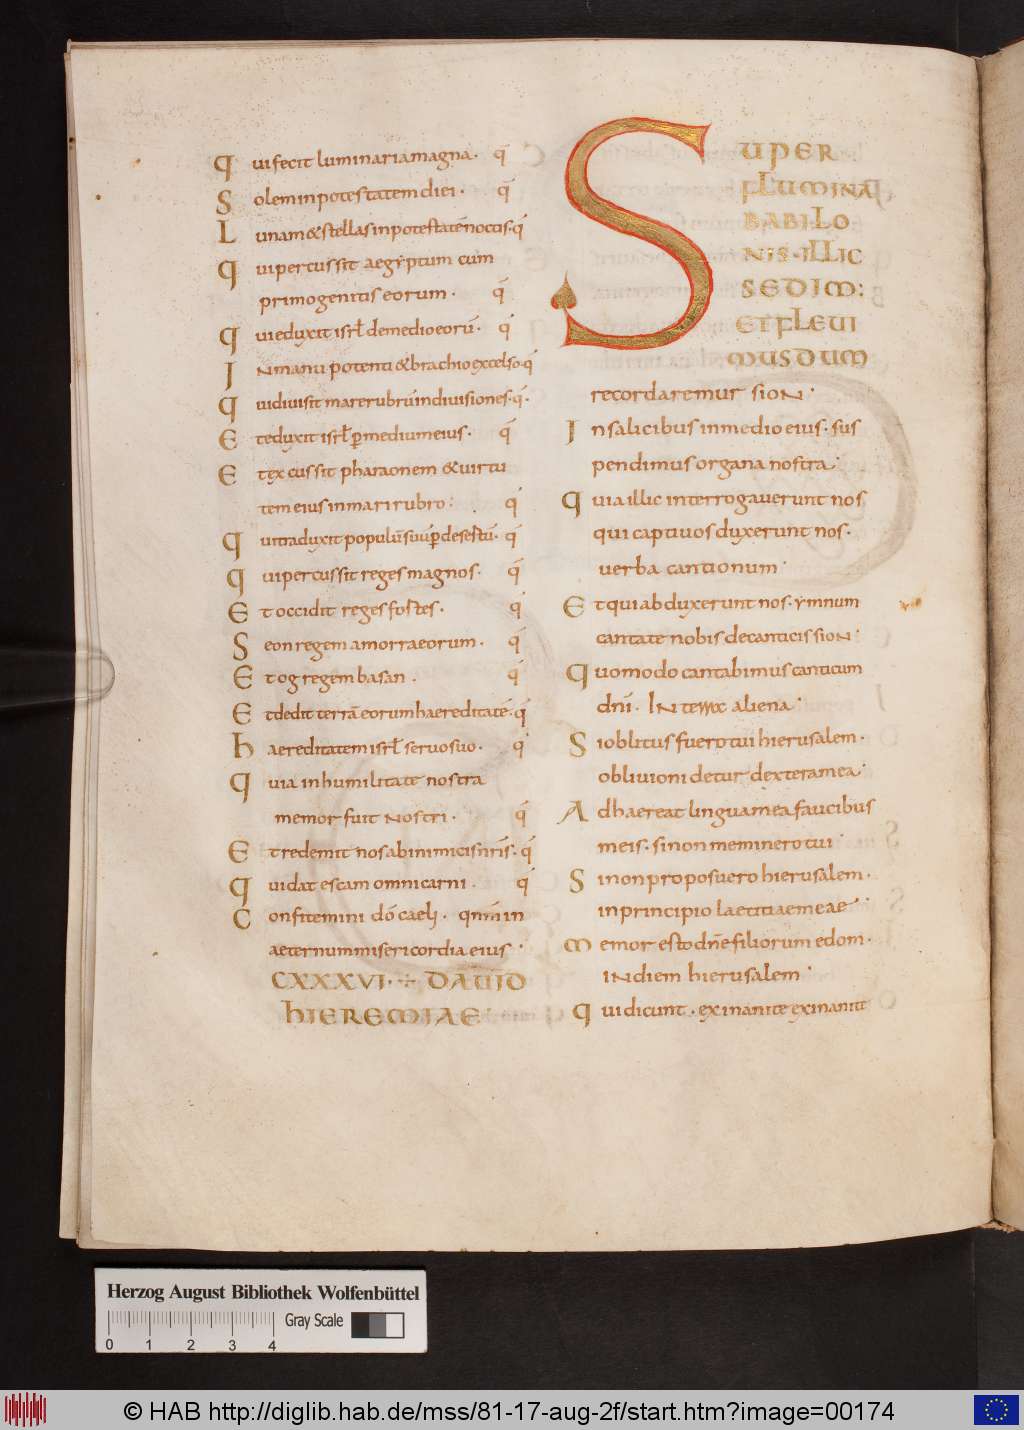 Qui fecit luminaria magna. q̄
Solem in potestatem diei. q̄
Lunam & stellas in potestatē noctis. q̄
Qui percussit aegyptum cum
primogenitis eorum. q̄
Qui eduxit isrl̄ de medio eorū. q̄
IN manu potenti & brachio excelso. q̄
Qui divisit mare rubrū in divisiones. q̄.
Et eduxit isrl̄ ꝑ medium eius. q̄
Et excussit pharaonem & virtu
tem eius in mari rubro: q̄
Qui traduxit populū suū
Qui percussit reges magnos. q̄
Et occidit reges fortes. q̄
Seon regem amorraeorum. q̄
Et og regem basan. q̄
Et dedit terrā eorum haereditatē. q̄
Haereditatem isrl̄ servo suo. q̄
Quia in humilitate nostra
memor fuit Nostri. q̄
Et redemit nos ab inimicis nr̄is. q̄
Qui dat escam omni carni. q̄
Confitemini dō caeli. qn̄m in
aeternum misericordia eius.
CXXXVI. DAVID
HIEREMIAE
SUPER
FLUMINA
BABILO
NIS. ILLIC
SEDIM:
ET FLEVI
MUS DUM
recordaremur sioN.
In salicibus in medio eius. sus
pendimus organa nostra.
Quia illic interrogaverunt nos
qui captivos duxerunt nos.
verba cantionum.
Et qui abduxerunt nos. ymnum
cantate nobis de canticis sioN.
Quomodo cantabimus canticum
dn̄i. IN terra aliena.
Si oblitus fuero tui hierusalem.
oblivioni detur dextera mea.
Adhaereat lingua mea faucibus
meis. si non meminero tui.
Si non proposuero hierusalem.
in principio laetitiae meae.
Memor esto dn̄e filiorum edom.
iN diem hierusalem.
Qui dicunt. exinanite exinanite
Herzog August Bibliothek Wolfenbüttel
Gray Scale
0 1 2 3 4
© HAB http://diglib.hab.de/mss/81-17-aug-2f/start.htm?image=00174